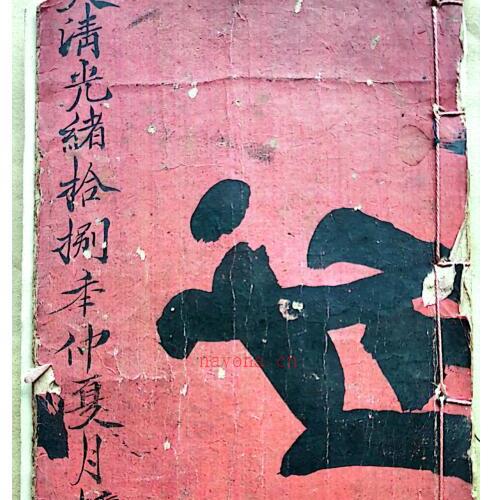 大清光緒拾捌年仲夏月
nayona.cn